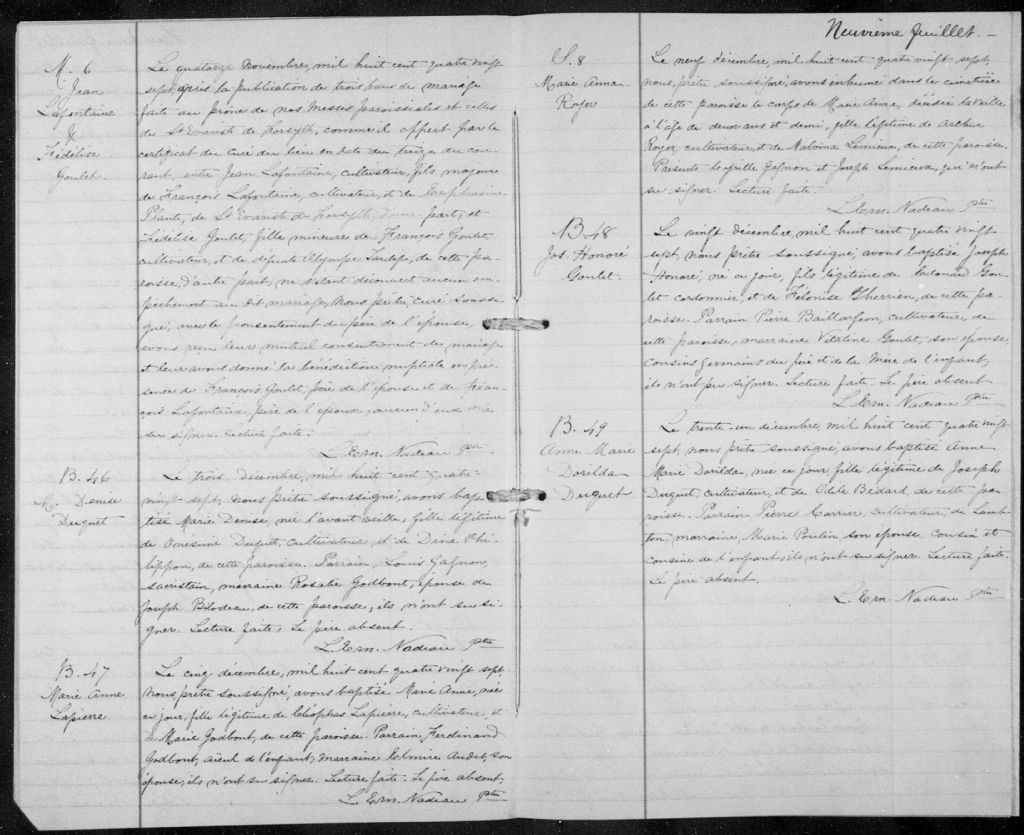 M. 6
Jean
Lafontaine
&
Fidélise
Goulet.
Le quatorze Novembre, mil huit cent quatre vingt
sept, après la publication de trois bans de mariage
faite au prône de nos Messes paroissiales et celles
de St Evariste de Forsyth, comme il appert par le
certificat du Curé du lieu en date du treize du cou-
rant, entre Jean Lafontaine, cultivateur, fils majeur
de François Lafontaine, cultivateur, et de Euphrosine
Plante, de St Evariste de Forsyth, d'une part, et
Fidélise Goulet, fille mineure de François Goulet,
cultivateur, et de défunte Olympe, de cette pa-
roisse, d'autre part, ne s'étant découvert aucun em-
pêchement au dit mariage, Nous prêtre, curé soussi-
gné, avec le consentement du père de l'épouse,
avons reçu leur mutuel consentement de mariage
et leur avons donné la bénédiction nuptiale en pré-
sence de François Goulet, père de l'épouse et de Fran-
çois Lafontaine, père de l'époux, aucun d'eux n'a
su signer. Lecture faite.
L. Ern. Nadeau Ptre
B. 46
M. Denise
Duquet
Le trois Décembre, mil huit cent quatre
vingt-sept, Nous prêtre soussigné, avons bap-
tisé Marie Denise, née l'avant veille, fille légitime
de Onésime Duquet, cultivateur, et de Dina Phi-
lippon, de cette paroisse. Parrain, Louis Gagnon,
sacristain, marraine Rosalie Godbout, épouse de
Joseph Bilodeau, de cette paroisse, ils n'ont su si-
gner. Lecture faite. Le père absent.
L. Ern. Nadeau Ptre
B. 47
Marie Anne
Lapierre
Le cinq décembre, mil huit cent quatre vingt sept,
Nous, prêtre soussigné, avons baptisé Marie Anne, née
ce jour, fille légitime de Cléophas Lapierre, cultivateur, et
de Marie Godbout, de cette paroisse. Parrain, Ferdinand
Godbout, aïeul de l'enfant, Marraine Elmire Audet, son
épouse, ils n'ont su signer. Lecture faite. Le père absent.
L. Ern. Nadeau Ptre
Neuvième feuillet. –
S. 8
Marie Anna
Royer
Le neuf décembre, mil huit cent quatre vingt sept,
nous, prêtre soussigné, avons inhumé dans le cimetière
de cette paroisse le corps de Marie Anna, décédée la veille
à l'âge de deux ans et demi, fille légitime de Arthur
Royer, cultivateur, et de Malvina Lemieux, de cette paroisse.
Présents Cyrille Gagnon et Joseph Lemieux, qui n'ont
su signer. Lecture faite.
L. Ern. Nadeau Ptre
B. 48
Jos. Honoré
Goulet.
Le vingt décembre, mil huit cent quatre vingt
sept, nous prêtre soussigné, avons baptisé Joseph
Honoré, né ce jour, fils légitime de Edouard Gou-
let cordonnier, et de Félonise Therrien, de cette pa-
roisse. Parrain Pierre Baillargeon, cultivateur, de
cette paroisse, marraine Vitaline Goulet, son épouse,
cousins germains du père et de la mère de l'enfant,
ils n'ont pu signer. Lecture faite. Le père absent
L. Ern. Nadeau Ptre
B. 49
Anne Marie
Dorilda
Duquet
Le trente-un décembre, mil huit cent quatre vingt
sept, nous prêtre soussigné, avons baptisé Anne
Marie Dorilda, née ce jour, fille légitime de Joseph
Duquet, cultivateur, et de Odile Bédard, de cette pa-
roisse. Parrain Pierre Carrier, cultivateur, de Lamb-
ton, marraine, Marie Poulin son épouse, cousin et
cousine de l'enfant, ils n'ont su signer. Lecture faite.
Le père absent.
L. Ern. Nadeau Ptre